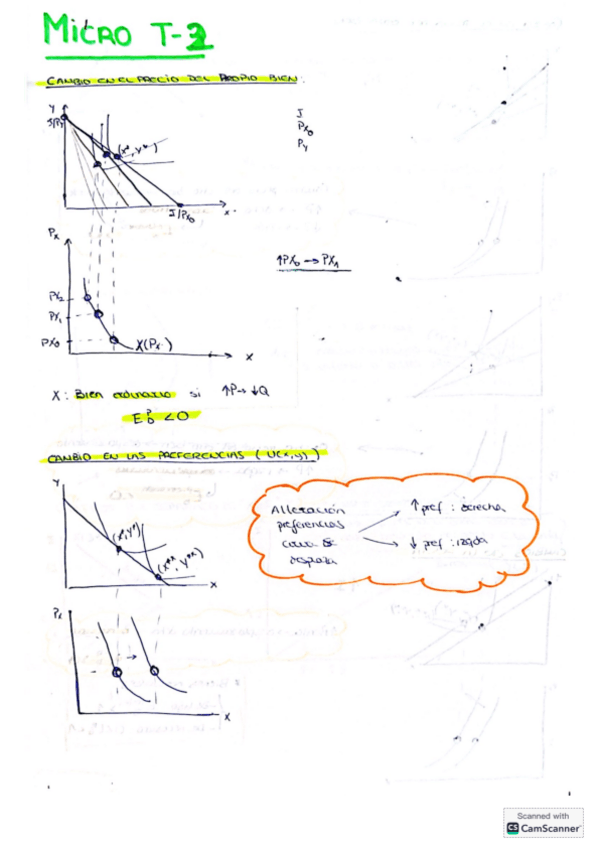 MICRO T-2
CAMBIO EN EL PRECIO DEL PROPIO BIEN:
Y
I/PY
(x*, y*)
I/PX0
X
I
PX0
PY
PX
PX2
PX1
PX0
X(PX)
X
↑PX0 → PX1
X: Bien ordinario si ↑P→ ↓Q
EPD < 0
CAMBIO EN LAS PREFERENCIAS (U(x,y))
Y
(x*,y*)
(x**, y**)
X
Alteración
preferencias
curva se
desplaza
↑ pref : derecha
↓ pref : izqda
PX
→
X
Scanned with
CS CamScanner